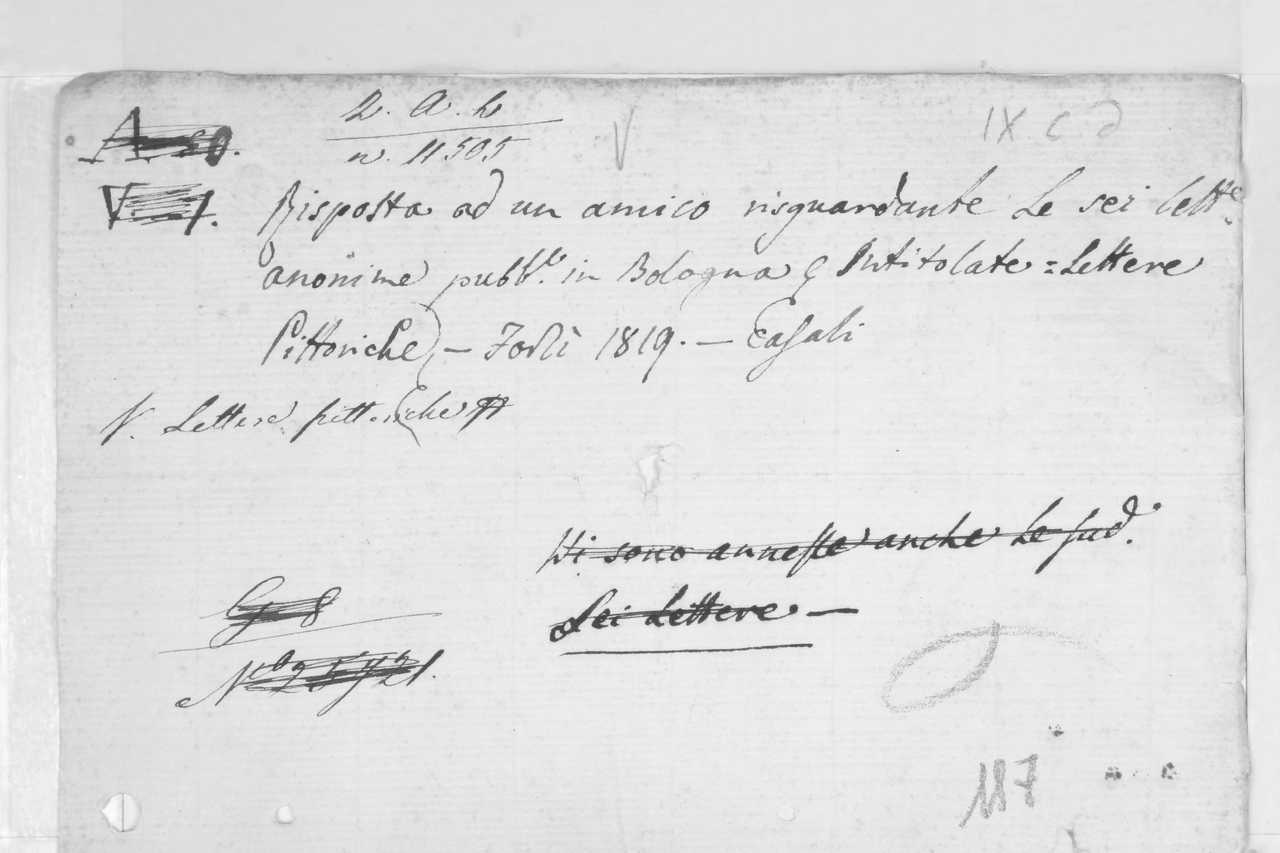 2. a. 2
IX C d
n. 11505
Risposta ad un amico risguardante Le sei Lett.e
anonime pubb.te in Bologna e Intitolate = Lettere
Pittoriche, — Forlì 1819. — Casali
V. Lettere pittoriche
Vi sono annesse anche Le sud.
Sei Lettere —
G 8
117